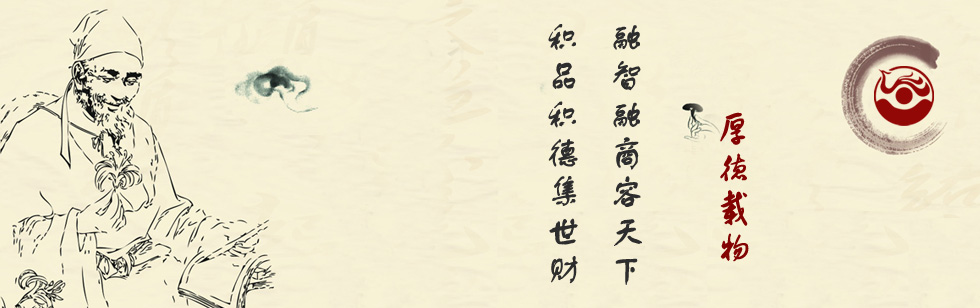 厚德载物
融智融商客天下
积品积德集世财